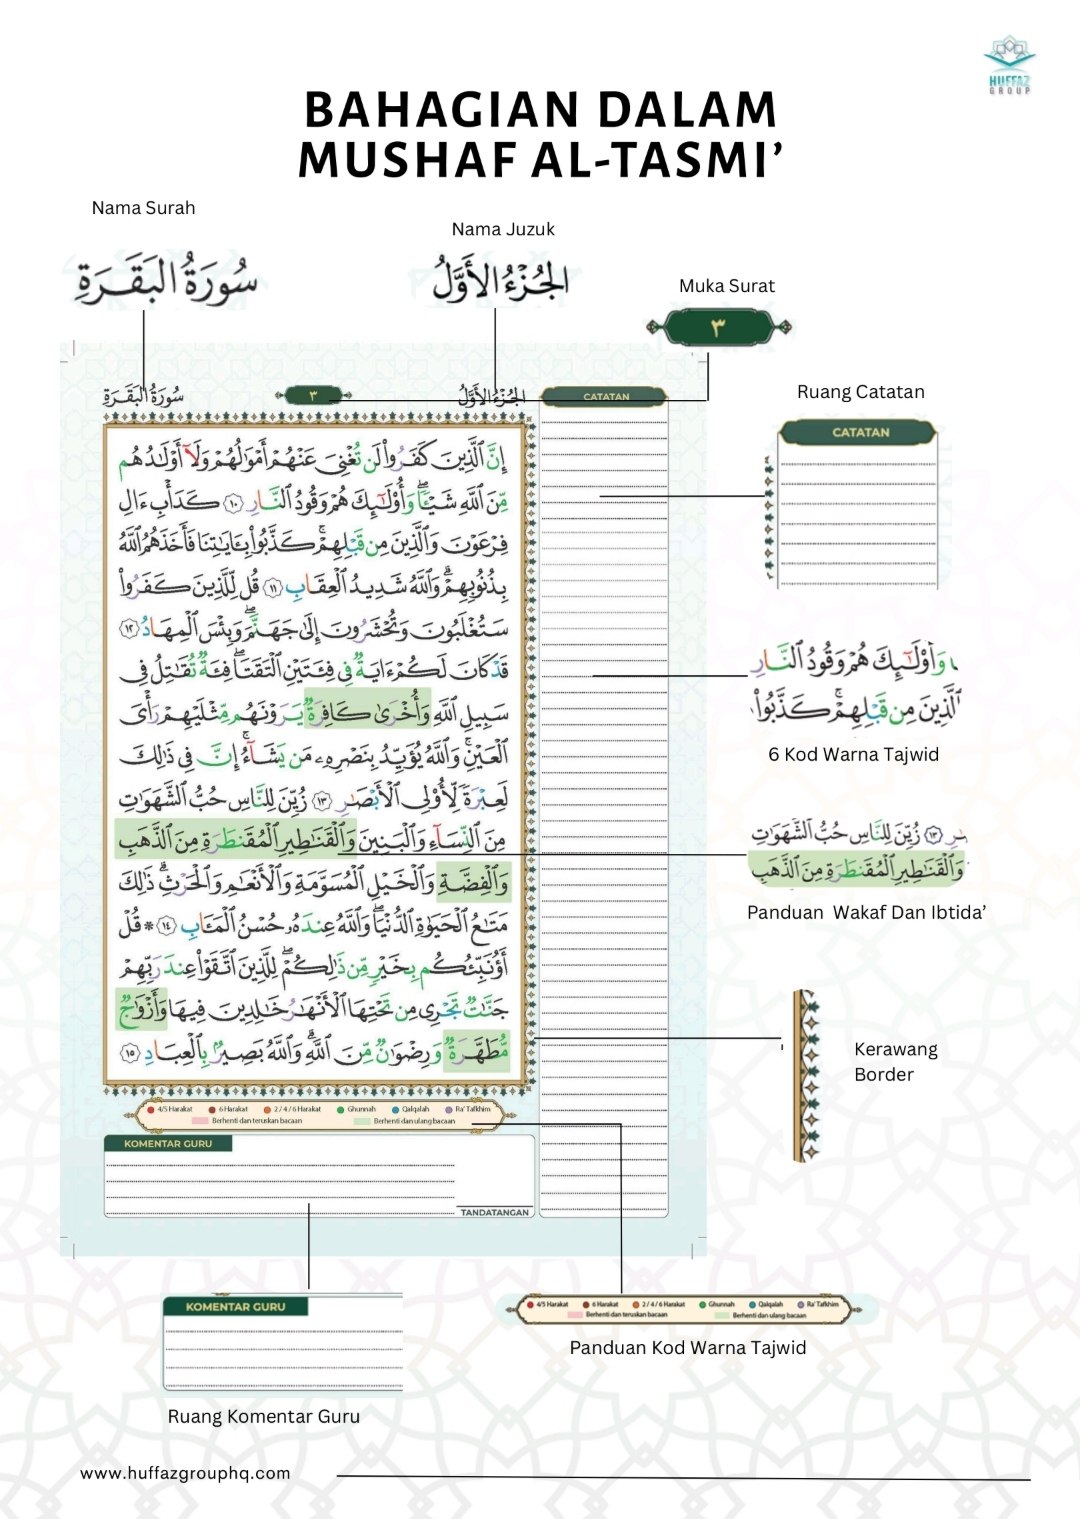 HUFFAZ
GROUP
BAHAGIAN DALAM
MUSHAF AL-TASMI’
Nama Surah
سُورَةُ البَقَرَةِ
Nama Juzuk
الجُزْءُ الأَوَّلُ
Muka Surat
٣
سُورَةُ البَقَرَةِ
٣
الجُزْءُ الأَوَّلُ
CATATAN
إِنَّ ٱلَّذِينَ كَفَرُوا۟ لَن تُغْنِىَ عَنْهُمْ أَمْوَٰلُهُمْ وَلَآ أَوْلَـٰدُهُم
مِّنَ ٱللَّهِ شَيْـًٔا ۖ وَأُو۟لَـٰٓئِكَ هُمْ وَقُودُ ٱلنَّارِ ١٠ كَدَأْبِ ءَالِ
فِرْعَوْنَ وَٱلَّذِينَ مِن قَبْلِهِمْ ۚ كَذَّبُوا۟ بِـَٔايَـٰتِنَا فَأَخَذَهُمُ ٱللَّهُ
بِذُنُوبِهِمْ ۗ وَٱللَّهُ شَدِيدُ ٱلْعِقَابِ ١١ قُل لِّلَّذِينَ كَفَرُوا۟
سَتُغْلَبُونَ وَتُحْشَرُونَ إِلَىٰ جَهَنَّمَ ۖ وَبِئْسَ ٱلْمِهَادُ ١٢
قَدْ كَانَ لَكُمْ ءَايَةٌ فِى فِئَتَيْنِ ٱلْتَقَتَا ۖ فِئَةٌ تُقَـٰتِلُ فِى
سَبِيلِ ٱللَّهِ وَأُخْرَىٰ كَافِرَةٌ يَرَوْنَهُم مِّثْلَيْهِمْ رَأْىَ
ٱلْعَيْنِ ۚ وَٱللَّهُ يُؤَيِّدُ بِنَصْرِهِۦ مَن يَشَآءُ ۚ إِنَّ فِى ذَٰلِكَ
لَعِبْرَةً لِّأُو۟لِى ٱلْأَبْصَـٰرِ ١٣ زُيِّنَ لِلنَّاسِ حُبُّ ٱلشَّهَوَٰتِ
مِنَ ٱلنِّسَآءِ وَٱلْبَنِينَ وَٱلْقَنَـٰطِيرِ ٱلْمُقَنطَرَةِ مِنَ ٱلذَّهَبِ
وَٱلْفِضَّةِ وَٱلْخَيْلِ ٱلْمُسَوَّمَةِ وَٱلْأَنْعَـٰمِ وَٱلْحَرْثِ ۗ ذَٰلِكَ
مَتَـٰعُ ٱلْحَيَوٰةِ ٱلدُّنْيَا ۖ وَٱللَّهُ عِندَهُۥ حُسْنُ ٱلْمَـَٔابِ ١٤ * قُلْ
أَؤُنَبِّئُكُم بِخَيْرٍ مِّن ذَٰلِكُمْ ۚ لِلَّذِينَ ٱتَّقَوْا۟ عِندَ رَبِّهِمْ
جَنَّـٰتٌ تَجْرِى مِن تَحْتِهَا ٱلْأَنْهَـٰرُ خَـٰلِدِينَ فِيهَا وَأَزْوَٰجٌ
مُّطَهَّرَةٌ وَرِضْوَٰنٌ مِّنَ ٱللَّهِ ۗ وَٱللَّهُ بَصِيرٌۢ بِٱلْعِبَادِ ١٥
4/5 Harakat 6 Harakat 2 / 4 / 6 Harakat Ghunnah Qalqalah Ra' Tafkhim
Berhenti dan teruskan bacaan Berhenti dan ulang bacaan
KOMENTAR GURU
TANDATANGAN
Ruang Catatan
CATATAN
وَأُو۟لَـٰٓئِكَ هُمْ وَقُودُ ٱلنَّارِ
ٱلَّذِينَ مِن قَبْلِهِمْ ۚ كَذَّبُوا۟
6 Kod Warna Tajwid
١٣ زُيِّنَ لِلنَّاسِ حُبُّ ٱلشَّهَوَٰتِ
وَٱلْقَنَـٰطِيرِ ٱلْمُقَنطَرَةِ مِنَ ٱلذَّهَبِ
Panduan Wakaf Dan Ibtida’
Kerawang
Border
KOMENTAR GURU
Ruang Komentar Guru
4/5 Harakat 6 Harakat 2 / 4 / 6 Harakat Ghunnah Qalqalah Ra' Tafkhim
Berhenti dan teruskan bacaan Berhenti dan ulang bacaan
Panduan Kod Warna Tajwid
www.huffazgrouphq.com